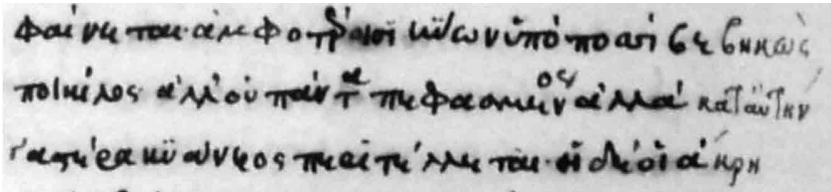 φαίνεται· ἀμφοτέροισϊ κϋων ὑπὸ ποσσὶ βεβηκὼς
ποικίλος ἀλλ' οὐ πάντα πεφασμένος ἀλλὰ κατ' αὐτὴν
γαστέρα κϋάνεος περιτέλλεται· ἡ δέ οἱ ἄκρη